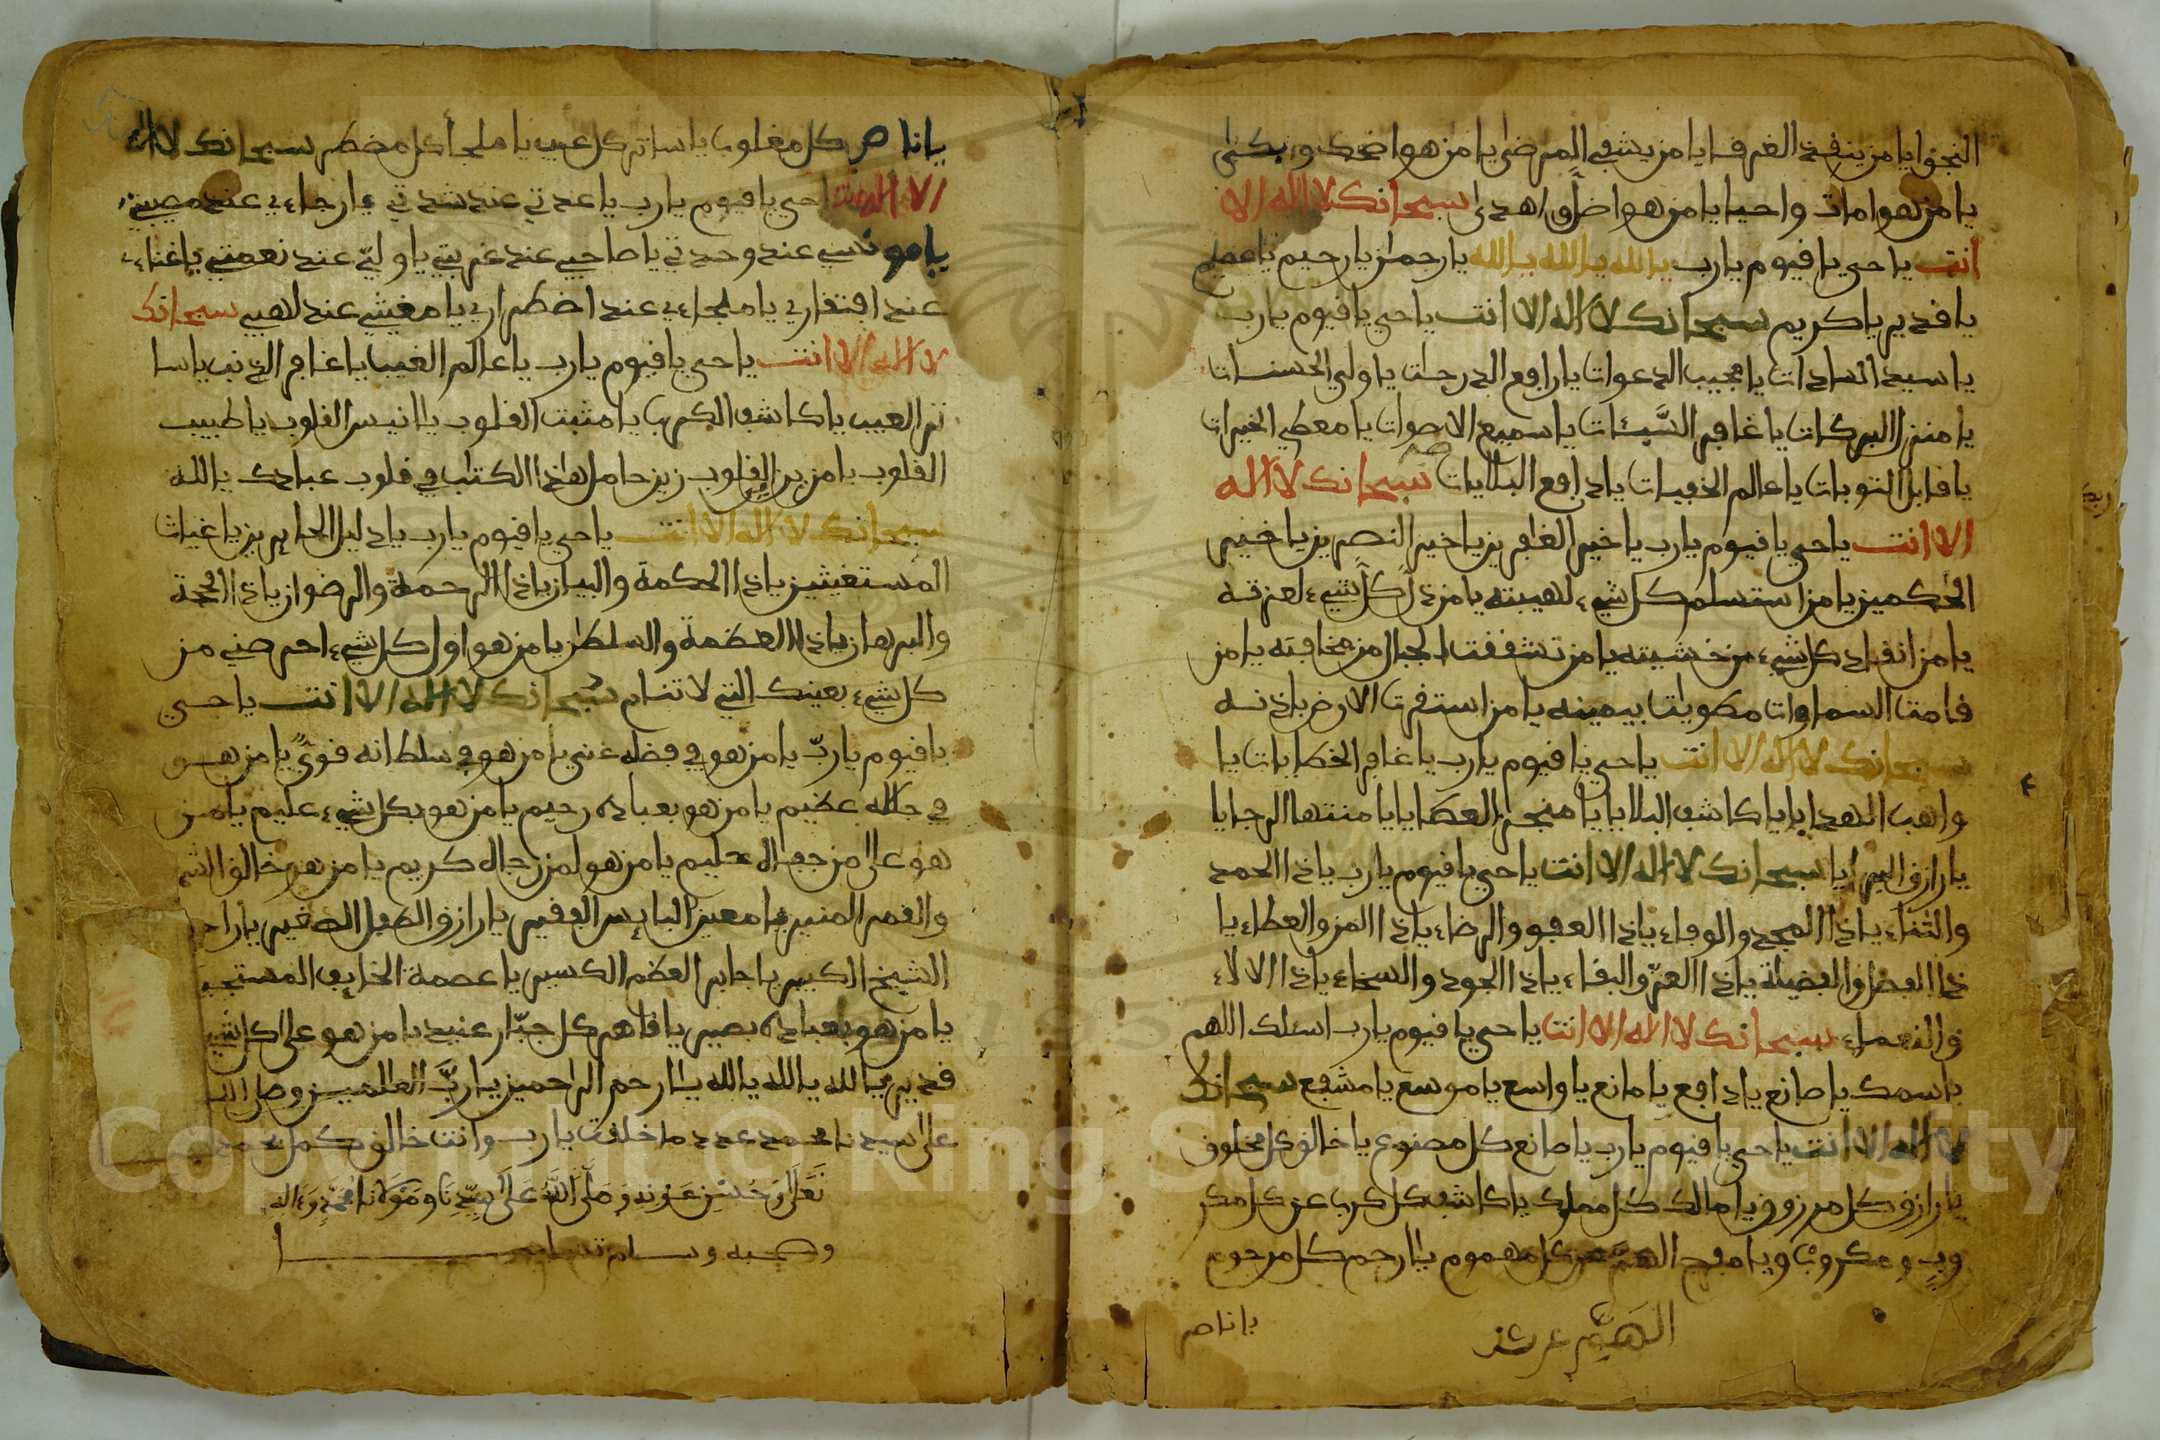 النجوا يا من ينفذ الغرفا يا من يشفي المرضى يا من هو اضحك وابكى
يا من هو امات واحيا يا من هو اضل وهدى سبحانك لا اله الا
انت يا حي يا قيوم يا رب يا لله يا لله يا لله يا رحمن يا رحيم يا عظيم
يا قدير يا كريم سبحانك لا اله الا انت يا حي يا قيوم يا رب
يا سيد السادات يا مجيب الدعوات يا رافع الدرجات يا ولي الحسنات
يا منزل البركات يا غافر السيئات يا سميع الاصوات يا معطي الخيرات
يا قابل التوبات يا عالم الخفيات يا دافع البلايات سبحانك لا اله
الا انت يا حي يا قيوم يا رب يا خير الغافرين يا خير النصرين يا خير
الحكمين يا من استسلم كل شيء لهيبته يا من ذل كل شيء لعزته
يا من انقاد كل شيء من خشيته يا من تشققت الجبال من مخافته يا من
قامت السماوات مطويات بيمينه يا من استقرت الارض باذنه
سبحانك لا اله الا انت يا حي يا قيوم يا رب يا غافر الخطايات يا
واهب الهدايا يا كاشف البلايا يا منجز العطايا يا منتها الرجايا
يا رازق البرايا سبحانك لا اله الا انت يا حي يا قيوم يا رب يا ذا الحمد
والثناء يا ذا المجد والوفاء يا ذا العفو والرضاء يا ذا المن والعطاء يا
ذا الفضل والفضيلة يا ذا العز والبقاء يا ذا الجود والسخاء يا ذا الالاء
والنعماء سبحانك لا اله الا انت يا حي يا قيوم يا رب اسئلك اللهم
باسمك يا صانع يا دافع يا مانع يا واسع يا موسع يا مشفع سبحانك
لا اله الا انت يا حي يا قيوم يا رب يا صانع كل مصنوع يا خالق كل مخلوق
يا رازق كل مرزوق يا مالك كل مملوك يا كاشف كل كرب عن كل مكر
وب ومكروب ويا مفرج الهم عن كل مهموم يا ارحم كل مرحوم
الهم عن
يا ناصر
يا ناصر كل مغلوب يا ساتر كل عيب يا ملجأ كل مضطر سبحانك لا اله
الا انت يا حي يا قيوم يا رب يا عدتي عند شدتي يا رجاءي عند مصيبتي
يا مونسي عند وحدتي يا صاحبي عند غربتي يا وليّ عند نعمتي يا غناءي
عند افتقاري يا ملجاءي عند اضطراري يا مغيثي عند لهبي سبحانك
لا اله الا انت يا حي يا قيوم يا رب يا عالم الغيب يا غافر الذنب يا سا
تر العيب يا كاشف الكرب يا مثبت القلوب يا انيس القلوب يا طبيب
القلوب يا مزين القلوب زين حامل هذا الكتب في قلوب عبادك يا الله
سبحانك لا اله الا انت يا حي يا قيوم يا رب يا دليل الحايرين يا غياث
المستغيثين يا ذا الحكمة والبيان يا ذا الرحمة والرضوان يا ذا الحجة
والبرهان يا ذا العظمة والسلطن يا من هو اول كل شيء احرصني من
كل شيء بعينك التي لا تنام سبحانك لا اله الا انت يا حي
يا قيوم يا ربّ يا من هو في فضله غني يا من هو في سلطانه قوي يا من هو
في جلاله عظيم يا من هو بعباده رحيم يا من هو بكل شيء عليم يا من
هو على من جفاه حليم يا من هو لمن رجاه كريم يا من هو خالق الشم
والقمر المنير يا معين البايس الفقير يا رازق الطفل الصغير يا راحم
الشيخ الكبير يا جابر العظم الكسير يا عصمة الخايف المستجير
يا من هو بعباده بصير يا قاهر كل جبّار عنيد يا من هو على كل شيء
قدير يا الله يا الله يا الله يا ارحم الراحمين يا ربّ العالمين وصلى الله
على سيدنا محمد عدد ما خلقت يا رب وانت خالق كمل بحمد
تعالى وحسن عونه وصلى الله على سيدنا ومولانا محمد وءاله
وصحبه وسلم تسليما